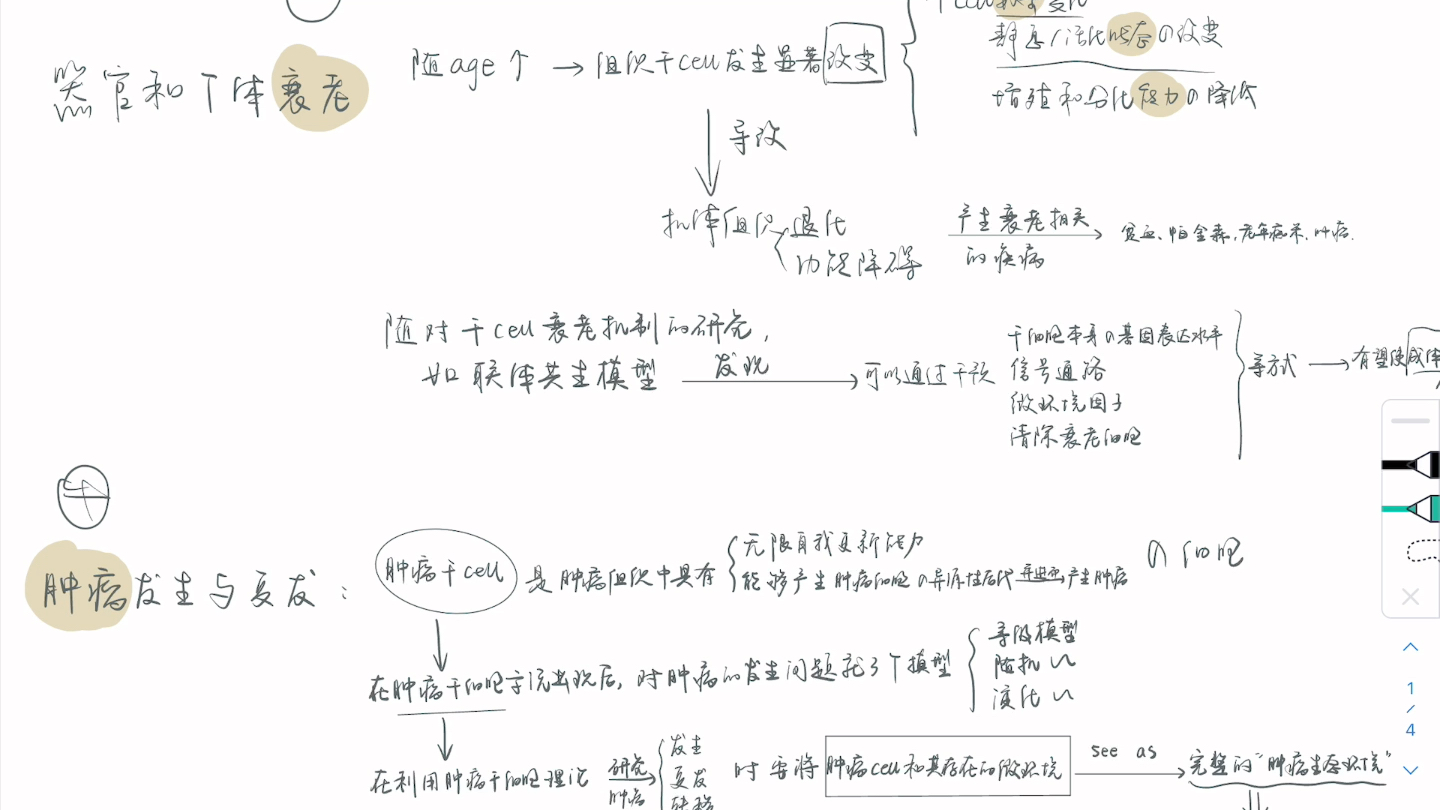 静息/活化状态の改变
器官和个体衰老
随age↑ → 组织干cell发生显著改变
增殖和分化能力の降低
导致
机体组织 退化
功能障碍
产生衰老相关
的疾病
贫血、帕金森,老年痴呆,肿瘤.
随对干cell衰老机制的研究,
如联体共生模型
发现
可以通过干预
干细胞本身の基因表达水平
信号通路
微环境因子
清除衰老细胞
等方式 → 有望使成体
肿瘤发生与复发:
肿瘤干cell
是肿瘤组织中具有
无限自我更新能力
能够产生肿瘤细胞の异源性后代 并进而产生肿瘤
の细胞
在肿瘤干细胞学说出现后,对肿瘤的发生问题就3个模型
等级模型
随机〃
演化〃
在利用肿瘤干细胞理论
研究
肿瘤
发生
复发
转移
时要将
肿瘤cell和其存在的微环境
see as
完整的"肿瘤生态环境"
1
/
4